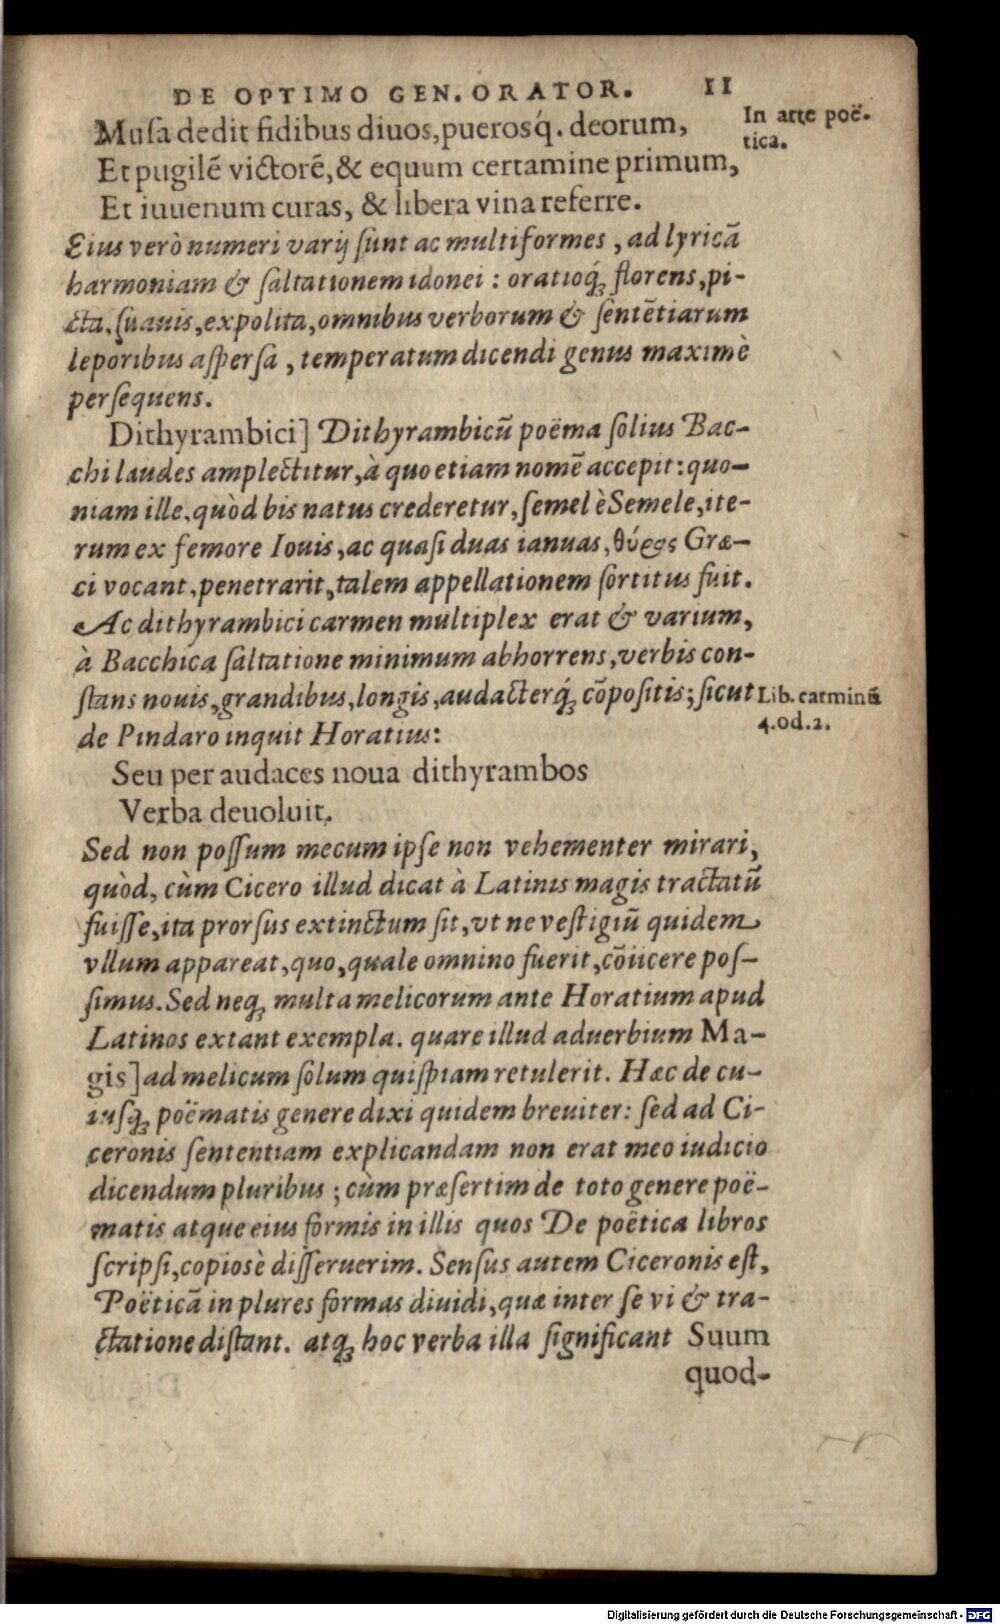 DE OPTIMO GEN. ORATOR. 11
Musa dedit fidibus diuos, puerosq́. deorum,
In arte poë-
tica.
Et pugilẽ victorẽ, & equum certamine primum,
Et iuuenum curas, & libera vina referre.
Eius verò numeri varij sunt ac multiformes, ad lyricã
harmoniam & saltationem idonei: oratioq́; florens, pi-
cta, suauis, expolita, omnibus verborum & sentẽtiarum
leporibus aspersa, temperatum dicendi genus maximè
persequens.
Dithyrambici] Dithyrambicũ poëma solius Bac-
chi laudes amplectitur, à quo etiam nomẽ accepit: quo-
niam ille, quòd bis natus crederetur, semel è Semele, ite-
rum ex femore Iouis, ac quasi duas ianuas, θύρας Græ-
ci vocant, penetrarit, talem appellationem sortitus fuit.
Ac dithyrambici carmen multiplex erat & varium,
à Bacchica saltatione minimum abhorrens, verbis con-
stans nouis, grandibus, longis, audacterq́; cõpositis; sicut
Lib. carminũ
4. od. 2.
de Pindaro inquit Horatius:
Seu per audaces noua dithyrambos
Verba deuoluit.
Sed non possum mecum ipse non vehementer mirari,
quòd, cùm Cicero illud dicat à Latinis magis tractatũ
fuisse, ita prorsus extinctum sit, vt ne vestigiũ quidem
vllum appareat, quo, quale omnino fuerit, cõiicere pos-
simus. Sed neq; multa melicorum ante Horatium apud
Latinos extant exempla. quare illud aduerbium Ma-
gis] ad melicum solum quispiam retulerit. Hæc de cu-
iusq; poëmatis genere dixi quidem breuiter: sed ad Ci-
ceronis sententiam explicandam non erat meo iudicio
dicendum pluribus; cùm præsertim de toto genere poë-
matis atque eius formis in illis quos De poëtica libros
scripsi, copiosè disseruerim. Sensus autem Ciceronis est,
Poëticã in plures formas diuidi, quæ inter se vi & tra-
ctatione distant. atq; hoc verba illa significant Suum
quod-
Digitalisierung gefördert durch die Deutsche Forschungsgemeinschaft - DFG